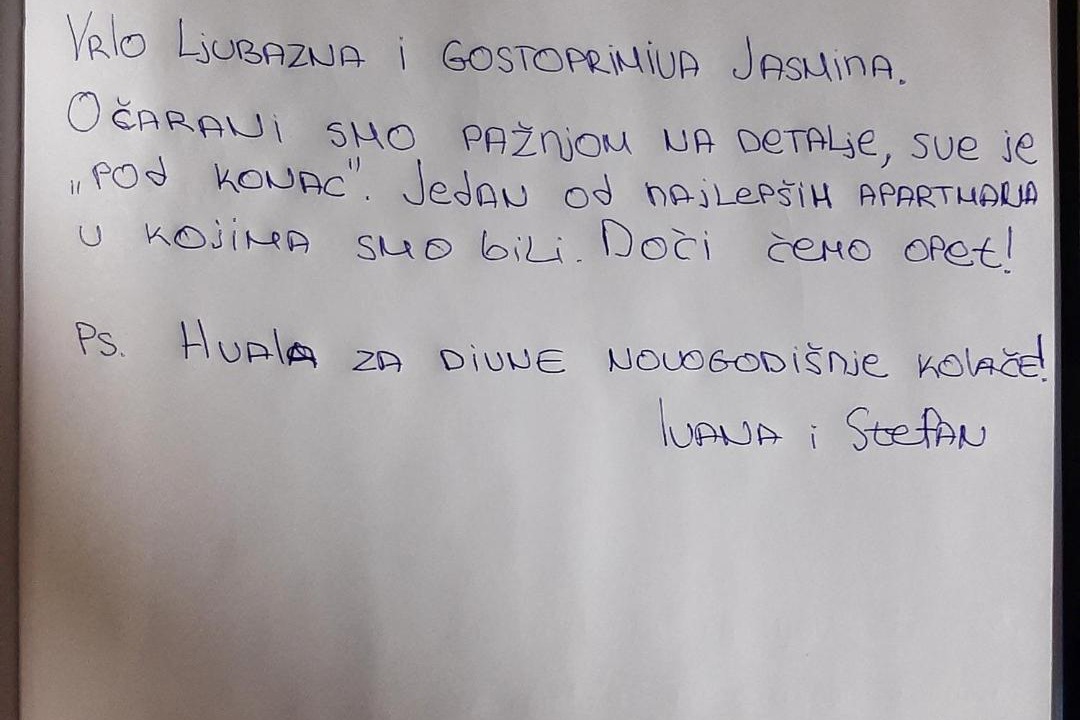 Vrlo ljubazna i gostoprimiva Jasmina.
Očarani smo pažnjom na detalje, sve je
„pod konac". Jedan od najlepših apartmana
u kojima smo bili. Doči čemo opet!
Ps. Hvala za divne novogodišnje kolače!
Ivana i Stefan